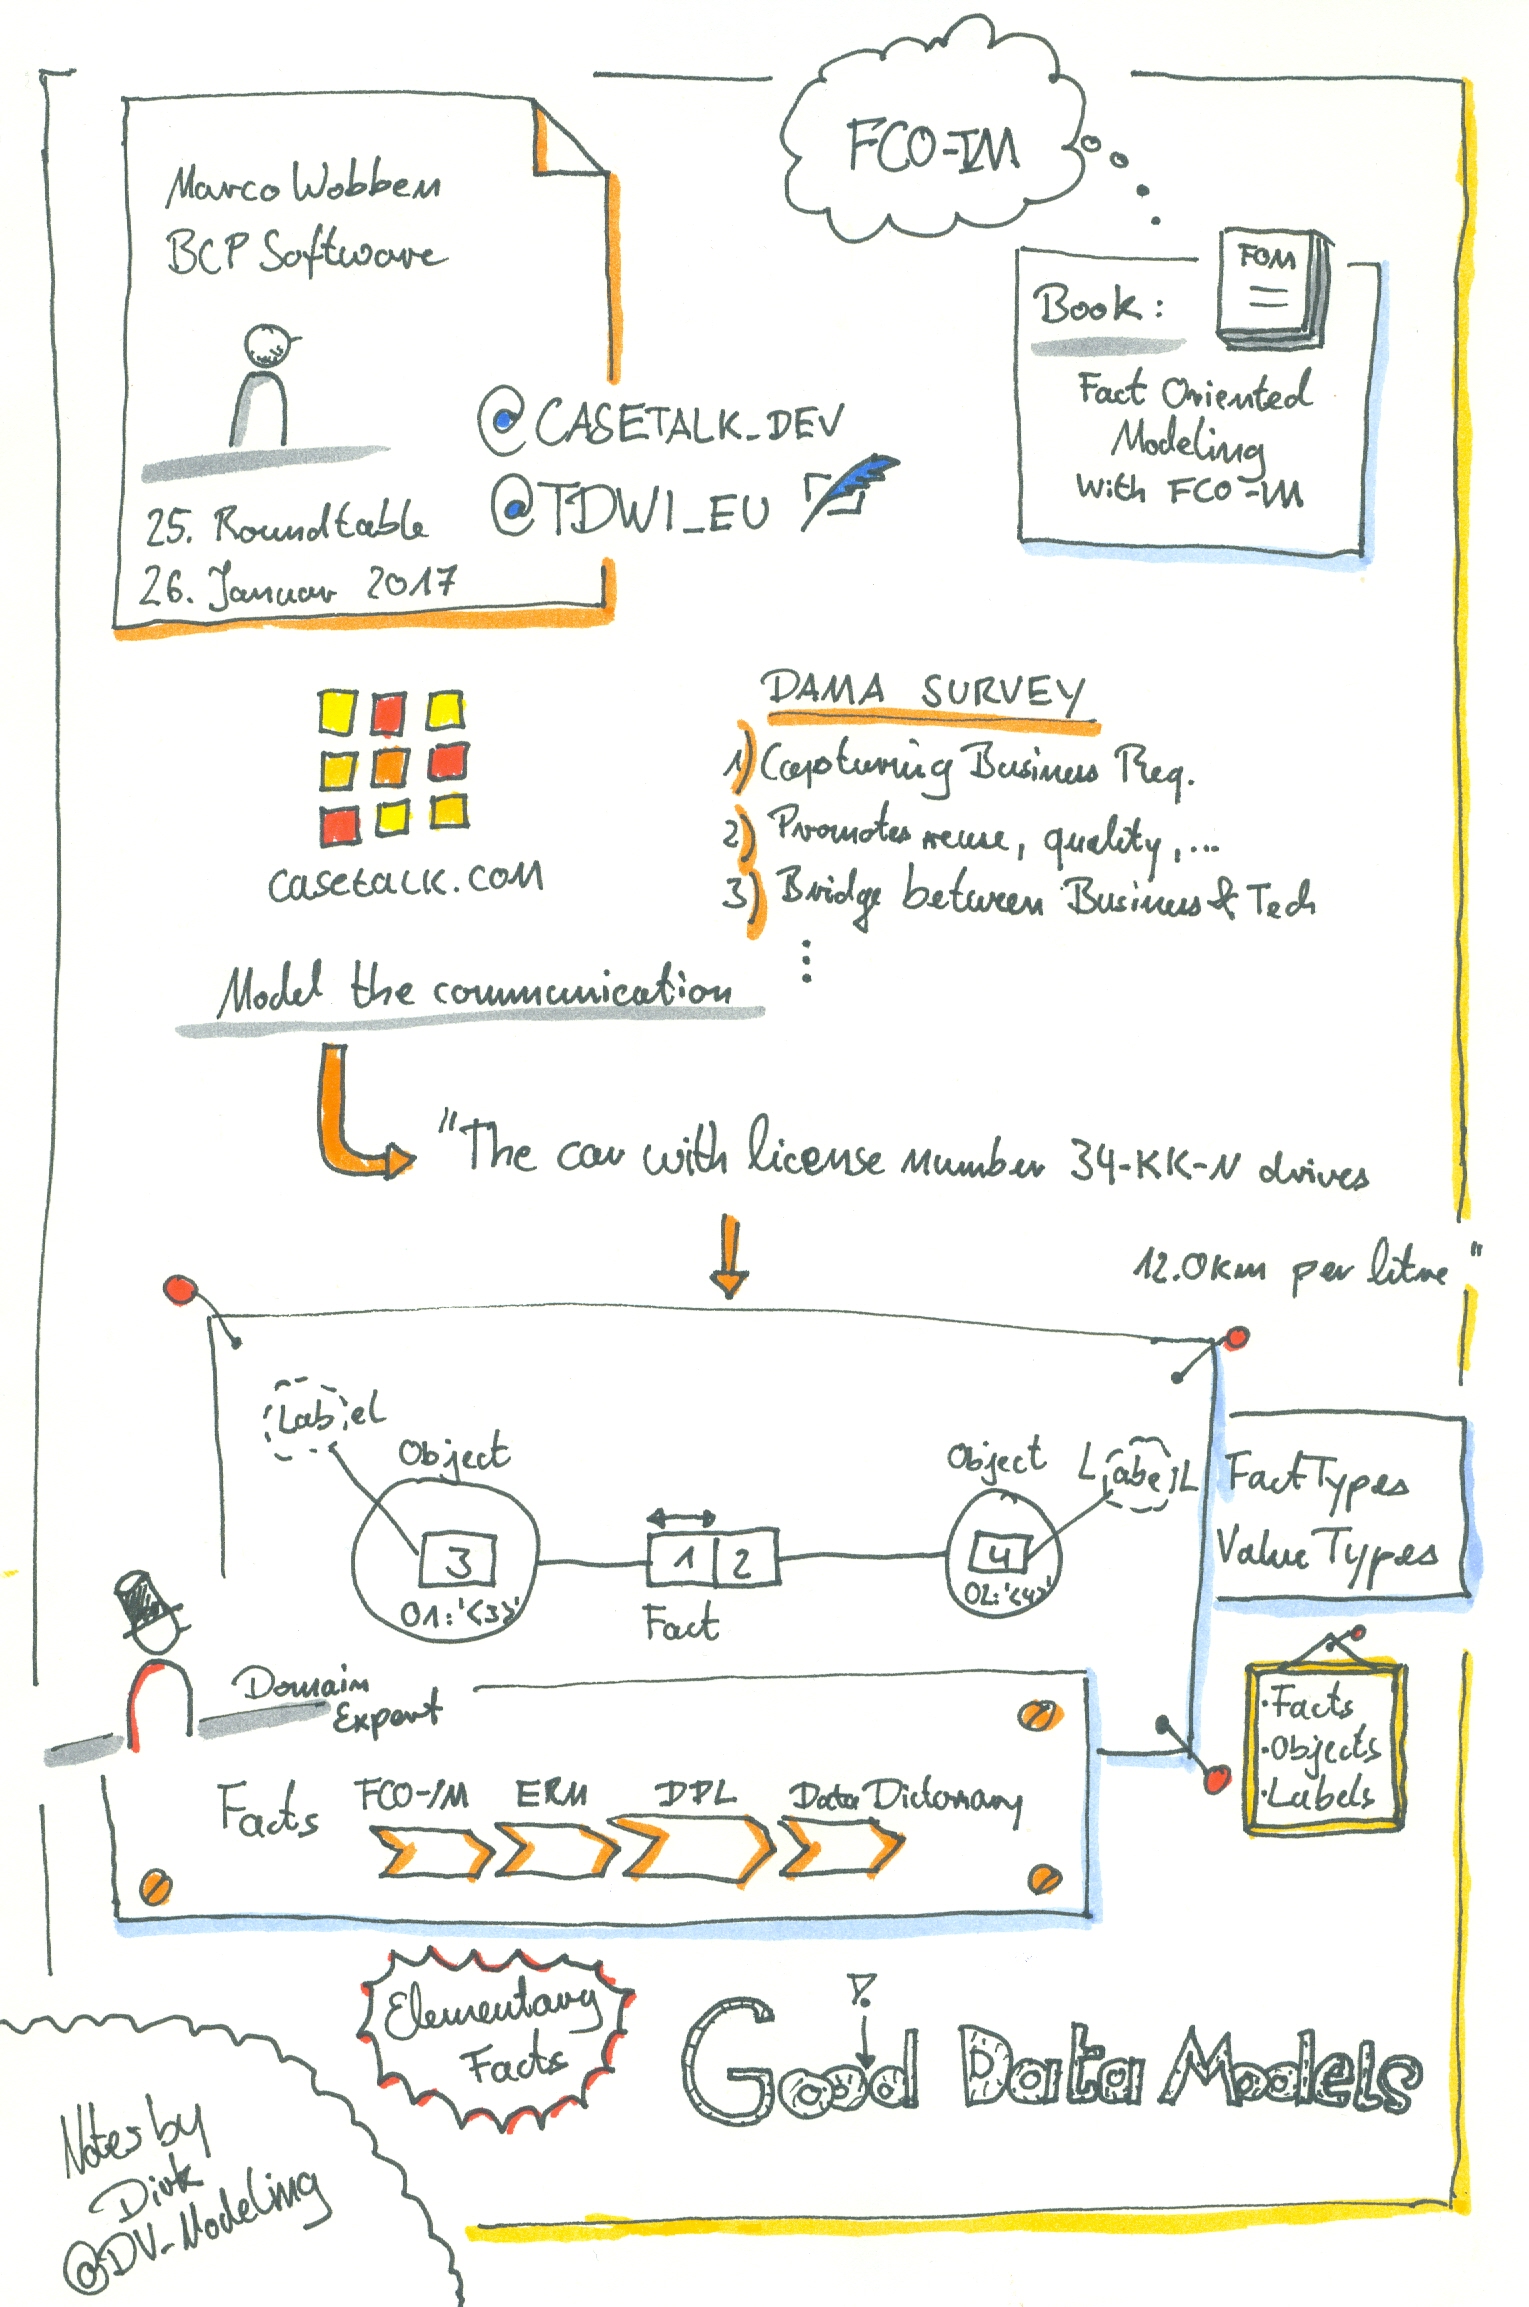 FCO-IM
Marco Wobben
BCP Software
FOM
Book:
Fact Oriented
Modeling
with FCO-IM
@CASETALK_DEV
@TDWI_EU
25. Roundtable
26. Januar 2017
DAMA SURVEY
1) Capturing Business Req.
2) Promotes reuse, quality, ...
3) Bridge between Business & Tech
casetalk.com
Model the communication
"The car with license number 34-KK-N drives
12.0km per litre"
Label
Object
Object
Label
3
1 2
4
O1:'<3>'
O2:'<4>'
Fact
Fact Types
Value Types
Domain
Expert
·Facts
·Objects
·Labels
Facts
FCO-IM
ERM
DDL
Data Dictonary
Elementary
Facts
Good Data Models
Notes by
Dirk
@DV_Modeling